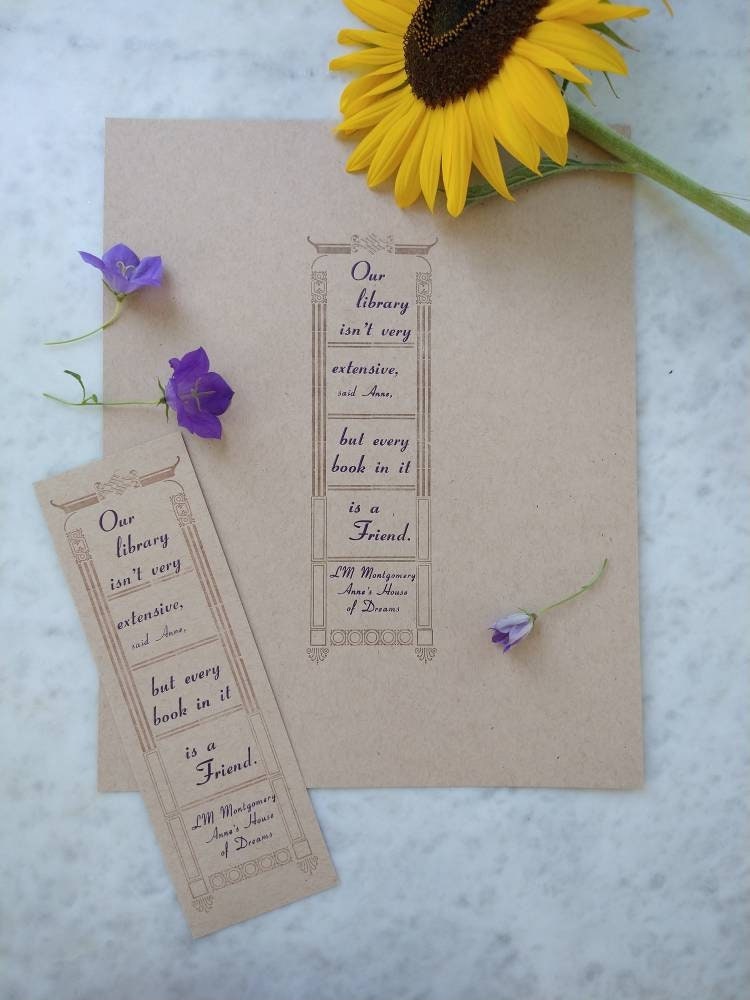 Our
library
isn't very
extensive,
said Anne,
but every
book in it
is a
Friend.
LM Montgomery
Anne's House
of Dreams
Our
library
isn't very
extensive,
said Anne,
but every
book in it
is a
Friend.
LM Montgomery
Anne's House
of Dreams